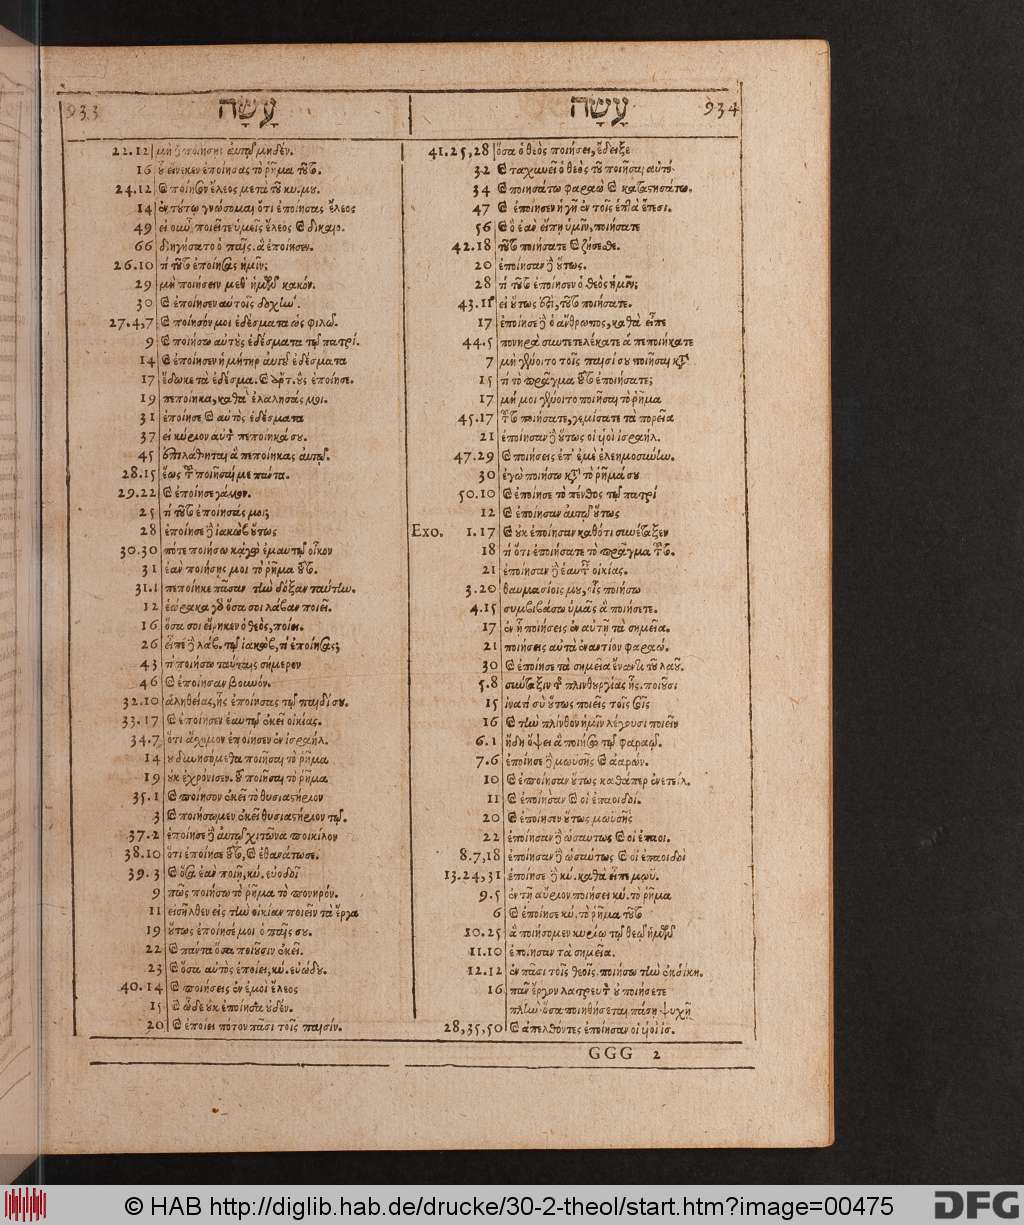 933 עָשָׂה
22.12 μὴ ποιήσῃς αὐτῷ μηδέν.
16 οὗ εἵνεκεν ἐποίησας τὸ ῥῆμα τοῦτο.
24.12 καὶ ποίησον ἔλεος μετὰ τοῦ κυ. μου.
14 ἐν τούτῳ γνώσομαι ὅτι ἐποίησας ἔλεος
49 εἰ οὖν ποιεῖτε ὑμεῖς ἔλεος καὶ δικαιο.
66 διηγήσατο ὁ παῖς. ἃ ἐποίησεν.
26.10 τί τοῦτο ἐποίησας ἡμῖν;
29 μὴ ποιήσειν μεθ' ἡμῶν κακόν.
30 καὶ ἐποίησεν αὐτοῖς δοχήν.
27.4,7 καὶ ποίησόν μοι ἐδέσματα ὡς φιλῶ.
9 καὶ ποιήσω αὐτοὺς ἐδέσματα τῷ πατρί.
14 καὶ ἐποίησεν ἡ μήτηρ αὐτοῦ ἐδέσματα
17 ἔδωκε τὰ ἐδέσμα. καὶ ἄρτ. οὓς ἐποίησε.
19 πεποίηκα, καθὰ ἐλάλησάς μοι.
31 ἐποίησε καὶ αὐτὸς ἐδέσματα
37 εἰ κύριον αὐτὸν πεποίηκά σου.
45 ἐπιλάθηται ἃ πεποίηκας αὐτῷ.
28.15 ἕως τοῦ ποιῆσαί με πάντα.
29.22 καὶ ἐποίησε γάμον.
25 τί τοῦτο ἐποίησάς μοι;
28 ἐποίησε δὲ ἰακὼβ οὕτως
30.30 πότε ποιήσω κἀγὼ ἐμαυτῷ οἶκον
31 ἐὰν ποιήσῃς μοι τὸ ῥῆμα τοῦτο.
31.1 πεποίηκε πᾶσαν τὴν δόξαν ταύτην.
12 ἑώρακα γὰρ ὅσα σοι λάβαν ποιεῖ.
16 ὅσα σοι εἴρηκεν ὁ θεὸς, ποίει.
26 εἶπε δὲ λάβ. τῷ ἰακὼβ, τί ἐποίησας;
43 τί ποιήσω ταύταις σήμερον
46 καὶ ἐποίησαν βουνόν.
32.10 ἀληθείας, ἧς ἐποίησας τῷ παιδί σου.
33.17 καὶ ἐποίησεν ἑαυτῷ ἐκεῖ οἰκίας.
34.7 ὅτι ἄσχημον ἐποίησεν ἐν ἰσραήλ.
14 οὐ δυνησόμεθα ποιῆσαι τὸ ῥῆμα
19 οὐκ ἐχρόνισεν. τοῦ ποιῆσαι τὸ ῥῆμα
35.1 καὶ ποίησον ἐκεῖ τὸ θυσιαστήριον
3 καὶ ποιήσωμεν ἐκεῖ θυσιαστήριον τῷ.
37.2 ἐποίησε δὲ αὐτῷ χιτῶνα ποικίλον
38.10 ὅτι ἐποίησε τοῦτο, καὶ ἐθανάτωσε.
39.3 καὶ ὅσα ἐὰν ποιῇ, κύ. εὐοδοῖ
9 πῶς ποιήσω τὸ ῥῆμα τὸ πονηρόν.
11 εἰσῆλθεν εἰς τὴν οἰκίαν ποιεῖν τὰ ἔργα
19 οὕτως ἐποίησέ μοι ὁ παῖς σου.
22 καὶ πάντα ὅσα ποιοῦσιν ἐκεῖ.
23 καὶ ὅσα αὐτὸς ἐποίει, κύ. εὐώδου.
40.14 καὶ ποιήσεις ἐν ἐμοὶ ἔλεος
15 καὶ ὧδε οὐκ ἐποίησα οὐδέν.
20 καὶ ἐποίει πότον πᾶσι τοῖς παισίν.
עָשָׂה 934
41.25,28 ὅσα ὁ θεὸς ποιήσει, ἔδειξε
32 καὶ ταχυνεῖ ὁ θεὸς τοῦ ποιῆσαι αὐτό.
34 καὶ ποιησάτω φαραὼ καὶ καταστησάτω.
47 καὶ ἐποίησεν ἡ γῆ ἐν τοῖς ἑπτὰ ἔτεσι.
56 καὶ ὃ ἐὰν εἴπῃ ὑμῖν, ποιήσατε
42.18 τοῦτο ποιήσατε καὶ ζήσεσθε.
20 ἐποίησαν δὲ οὕτως.
28 τί τοῦτο ἐποίησεν ὁ θεὸς ἡμῖν;
43.11 εἰ οὕτως ἐστὶ, τοῦτο ποιήσατε.
17 ἐποίησε δὲ ὁ ἄνθρωπος, καθὰ εἶπε
44.5 πονηρὰ συντετελέκατε ἃ πεποιήκατε
7 μὴ γένοιτο τοῖς παισί σου ποιῆσαι κατὰ
15 τί τὸ πρᾶγμα τοῦτο ἐποιήσατε;
17 μή μοι γένοιτο ποιῆσαι τὸ ῥῆμα
45.17 τοῦτο ποιήσατε, γεμίσατε τὰ πορεῖα
21 ἐποίησαν δὲ οὕτως οἱ υἱοὶ ἰσραήλ.
47.29 καὶ ποιήσεις ἐπ' ἐμὲ ἐλεημοσύνην.
30 ἐγὼ ποιήσω κατὰ τὸ ῥῆμά σου
50.10 καὶ ἐποίησε τὸ πένθος τῷ πατρί
12 καὶ ἐποίησαν αὐτῷ οὕτως
Exo. 1.17 καὶ οὐκ ἐποίησαν καθότι συνέταξεν
18 τί ὅτι ἐποιήσατε τὸ πρᾶγμα τοῦτο.
21 ἐποίησαν δὲ ἑαυτοῖς οἰκίας.
3.20 θαυμασίοις μου, οἷς ποιήσω
4.15 συμβιβάσω ὑμᾶς ἃ ποιήσετε.
17 ἐν ᾗ ποιήσεις ἐν αὐτῇ τὰ σημεῖα.
21 ποιήσεις αὐτὰ ἐναντίον φαραώ.
30 καὶ ἐποίησε τὰ σημεῖα ἔναντι τοῦ λαοῦ.
5.8 σύνταξιν τῆς πλινθουργίας ἧς. ποιοῦσι
15 ἱνατί σὺ οὕτως ποιεῖς τοῖς σοῖς
16 καὶ τὴν πλίνθον ἡμῖν λέγουσι ποιεῖν
6.1 ἤδη ὄψει ἃ ποιήσω τῷ φαραῷ.
7.6 ἐποίησε δὲ μωυσῆς καὶ ἀαρών.
10 καὶ ἐποίησαν οὕτως καθάπερ ἐνετείλ.
11 καὶ ἐποίησαν καὶ οἱ ἐπαοιδοί.
20 καὶ ἐποίησεν οὕτως μωυσῆς
22 ἐποίησαν δὲ ὡσαύτως καὶ οἱ ἐπαοι.
8.7,18 ἐποίησαν δὲ ὡσαύτως καὶ οἱ ἐπαοιδοὶ
13.24,31 ἐποίησε δὲ κύ. καθὰ εἶπε μωϋ.
9.5 ἐν τῇ αὔριον ποιήσει κύ. τὸ ῥῆμα
6 καὶ ἐποίησε κύ. τὸ ῥῆμα τοῦτο
10.25 ἃ ποιήσομεν κυρίῳ τῷ θεῷ ἡμῶν
11.10 ἐποίησαν τὰ σημεῖα.
12.12 ἐν πᾶσι τοῖς θεοῖς. ποιήσω τὴν ἐκδίκη.
16 πᾶν ἔργον λατρευτὸν οὐ ποιήσετε
πλὴν ὅσα ποιηθήσεται πάσῃ ψυχῇ
28,35,50 καὶ ἀπελθόντες ἐποίησαν οἱ υἱοὶ ἰσ.
GGG 2
© HAB http://diglib.hab.de/drucke/30-2-theol/start.htm?image=00475 DFG